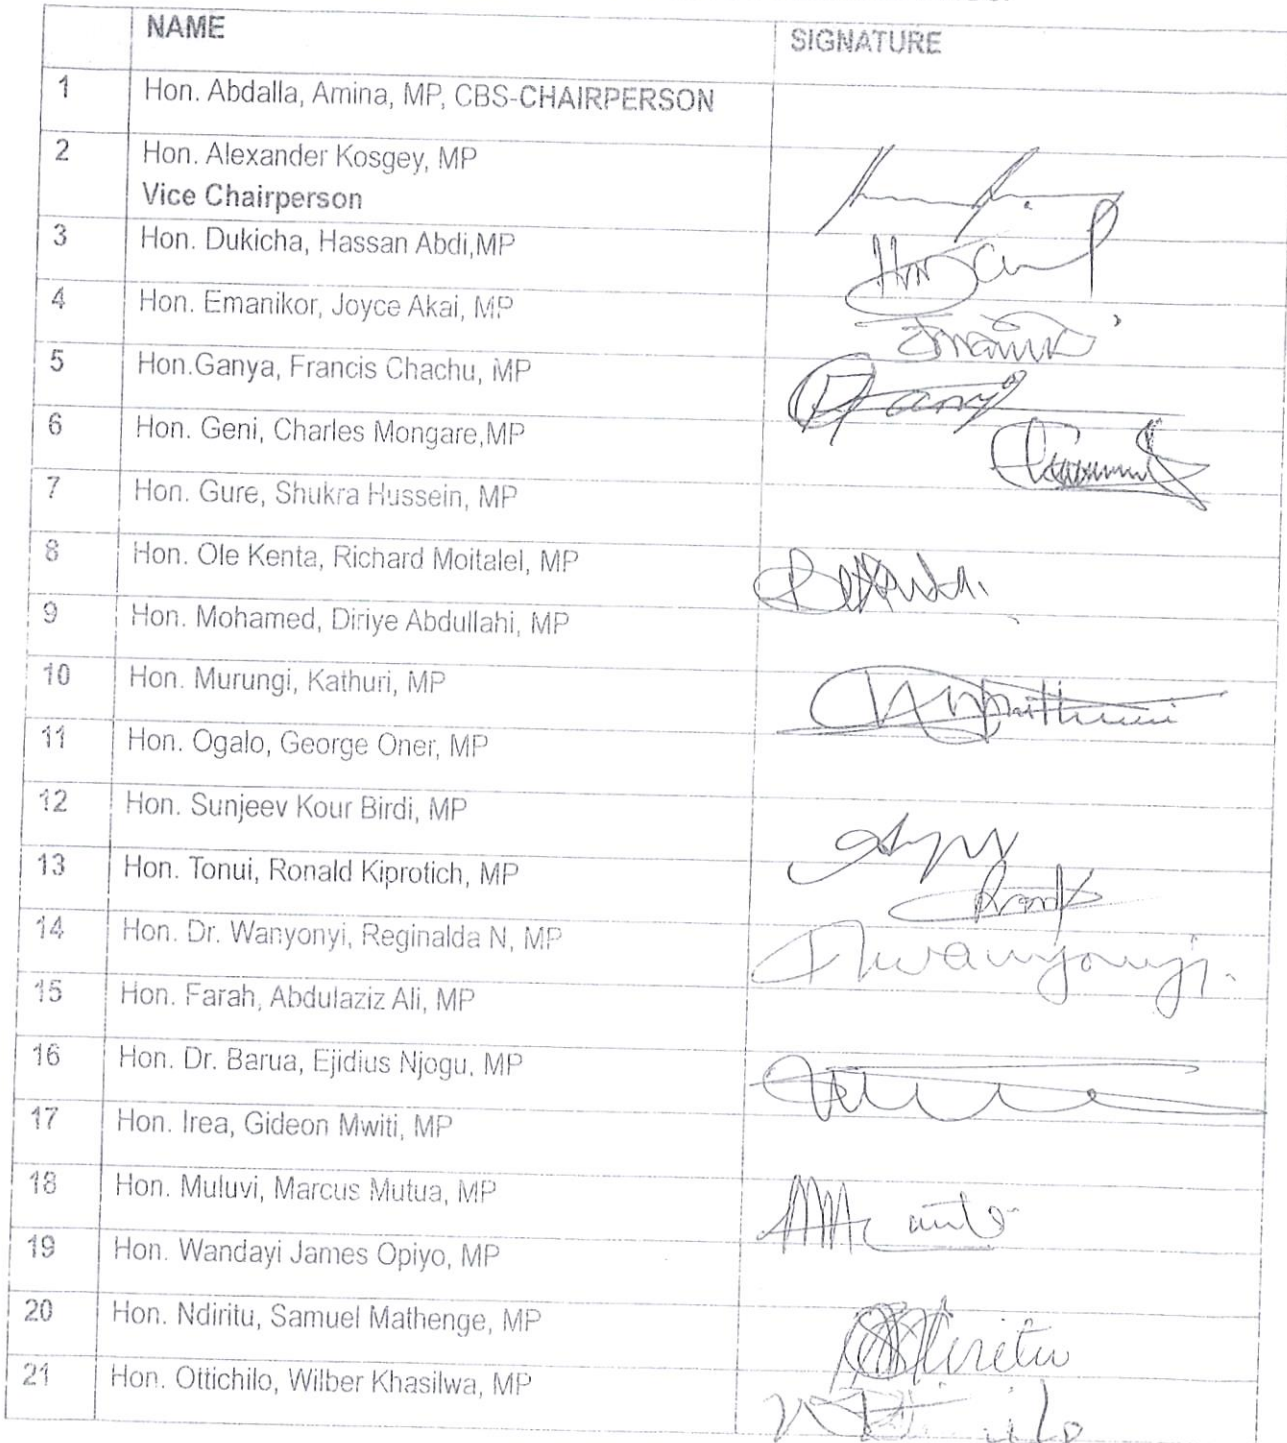 NAME SIGNATURE
1 Hon. Abdalla, Amina, MP, CBS-CHAIRPERSON
2 Hon. Alexander Kosgey, MP
Vice Chairperson
3 Hon. Dukicha, Hassan Abdi,MP
4 Hon. Emanikor, Joyce Akai, MP
5 Hon.Ganya, Francis Chachu, MP
6 Hon. Geni, Charles Mongare,MP
7 Hon. Gure, Shukra Hussein, MP
8 Hon. Ole Kenta, Richard Moitalel, MP
9 Hon. Mohamed, Diriye Abdullahi, MP
10 Hon. Murungi, Kathuri, MP
11 Hon. Ogalo, George Oner, MP
12 Hon. Sunjeev Kour Birdi, MP
13 Hon. Tonui, Ronald Kiprotich, MP
14 Hon. Dr. Wanyonyi, Reginalda N, MP
15 Hon. Farah, Abdulaziz Ali, MP
16 Hon. Dr. Barua, Ejidius Njogu, MP
17 Hon. Irea, Gideon Mwiti, MP
18 Hon. Muluvi, Marcus Mutua, MP
19 Hon. Wandayi James Opiyo, MP
20 Hon. Ndiritu, Samuel Mathenge, MP
21 Hon. Ottichilo, Wilber Khasilwa, MP